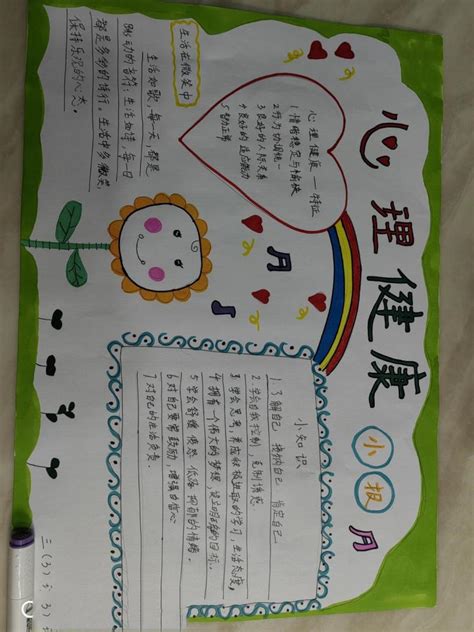 心理健康
小报
生活在微笑中
生活如歌,每一天,都是
跳动的音符,生活如诗,每一日
都是多彩的诗行。生活中多微笑,
保持乐观的心态。
心理健康——特征
1情绪稳定与愉快
2行为协调统一
3良好的人际关系
4良好的适应能力
5智力正常
小知识
1.了解自己,接纳自己,肯定自己
2.学会自我控制,克制情感
3.学会思考,养成积极进取的学习、生活态度。
4.拥有一个伟大的梦想,设立明确的目标。
5.学会舒缓愤怒、低落、抑郁的情绪。
6.对自己要常鼓励,增强自信心
7.对自己的生活负责。
三(3)